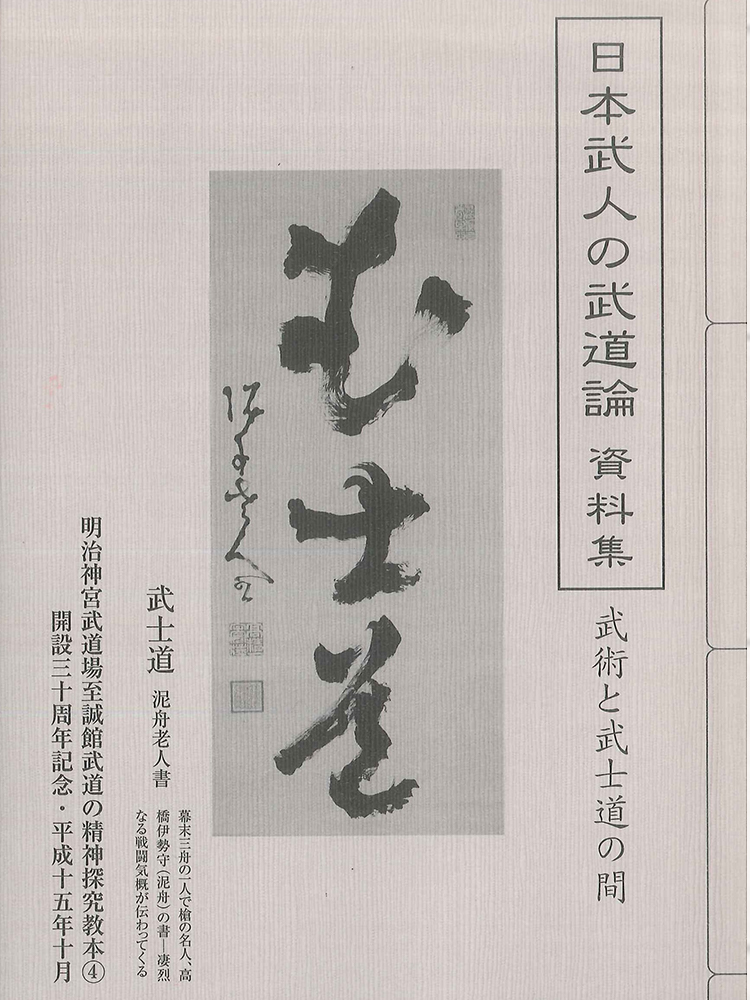 日本武人の武道論 資料集
武術と武士道の間
武士道
泥舟老人書
武士道 泥舟老人書
幕末三舟の一人で槍の名人、高
橋伊勢守(泥舟)の書―凄烈
なる戦闘気概が伝わってくる
明治神宮武道場至誠館武道の精神探究教本④
開設三十周年記念・平成十五年十月